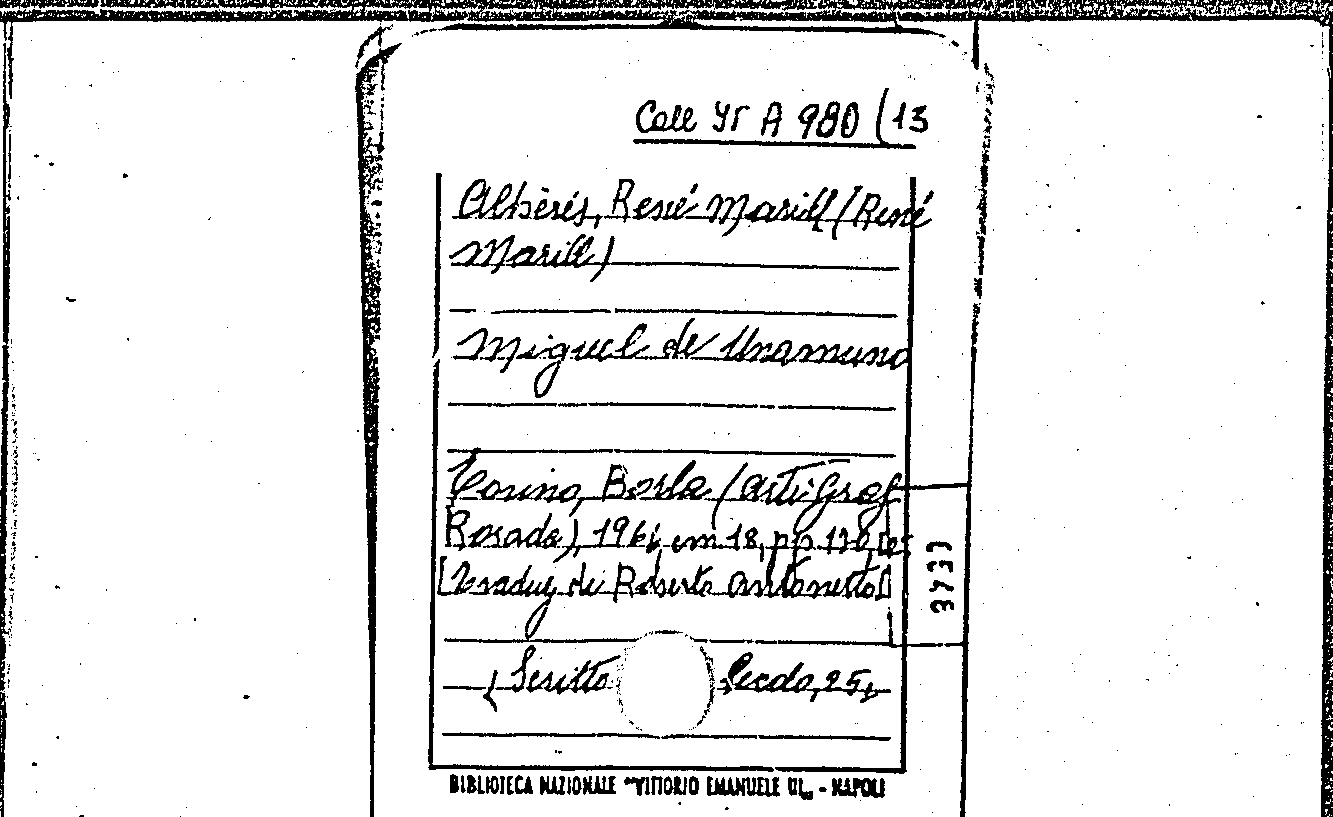 Coll. It A 980 (13
Albérès, René Marill (René
Marill)
Miguel de Unamuno
Torino, Borla (Arti Graf
Rosada), 196 , cm 18, pp. 170,
[Traduz. di Roberto Antonetto]
(Scritto Secolo, 25,
3737
BIBLIOTECA NAZIONALE "VITTORIO EMANUELE III„ - NAPOLI